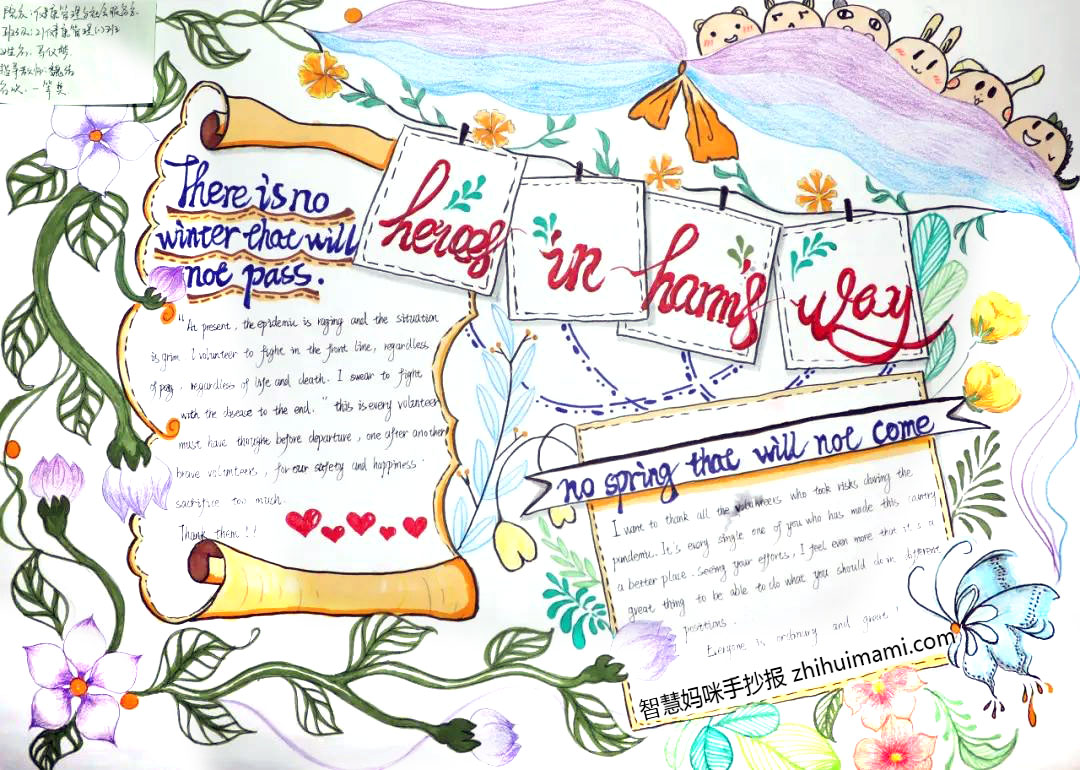 院系:健康管理与社会服务系
班级:21健康管理(1)班
姓名:
指导教师:魏
名次:一等奖
heroes in harm's way
There is no
winter that will
not pass.
"At present, the epidemic is raging and the situation
is grim. I volunteer to fight in the front line, regardless
of pay, regardless of life and death. I swear to fight
with the disease to the end." this is every volunteer
must have thought before departure, one after another
brave volunteers, for our safety and happiness.
sacrifice too much.
Thank them!!
no spring that will not come
I want to thank all the volunteers who took risks during the
pandemic. It's every single one of you who has made this country
a better place. Seeing your efforts, I feel even more that it's a
great thing to be able to do what you should do in different
positions.
Everyone is ordinary and great!
智慧妈咪手抄报 zhihuimami.com